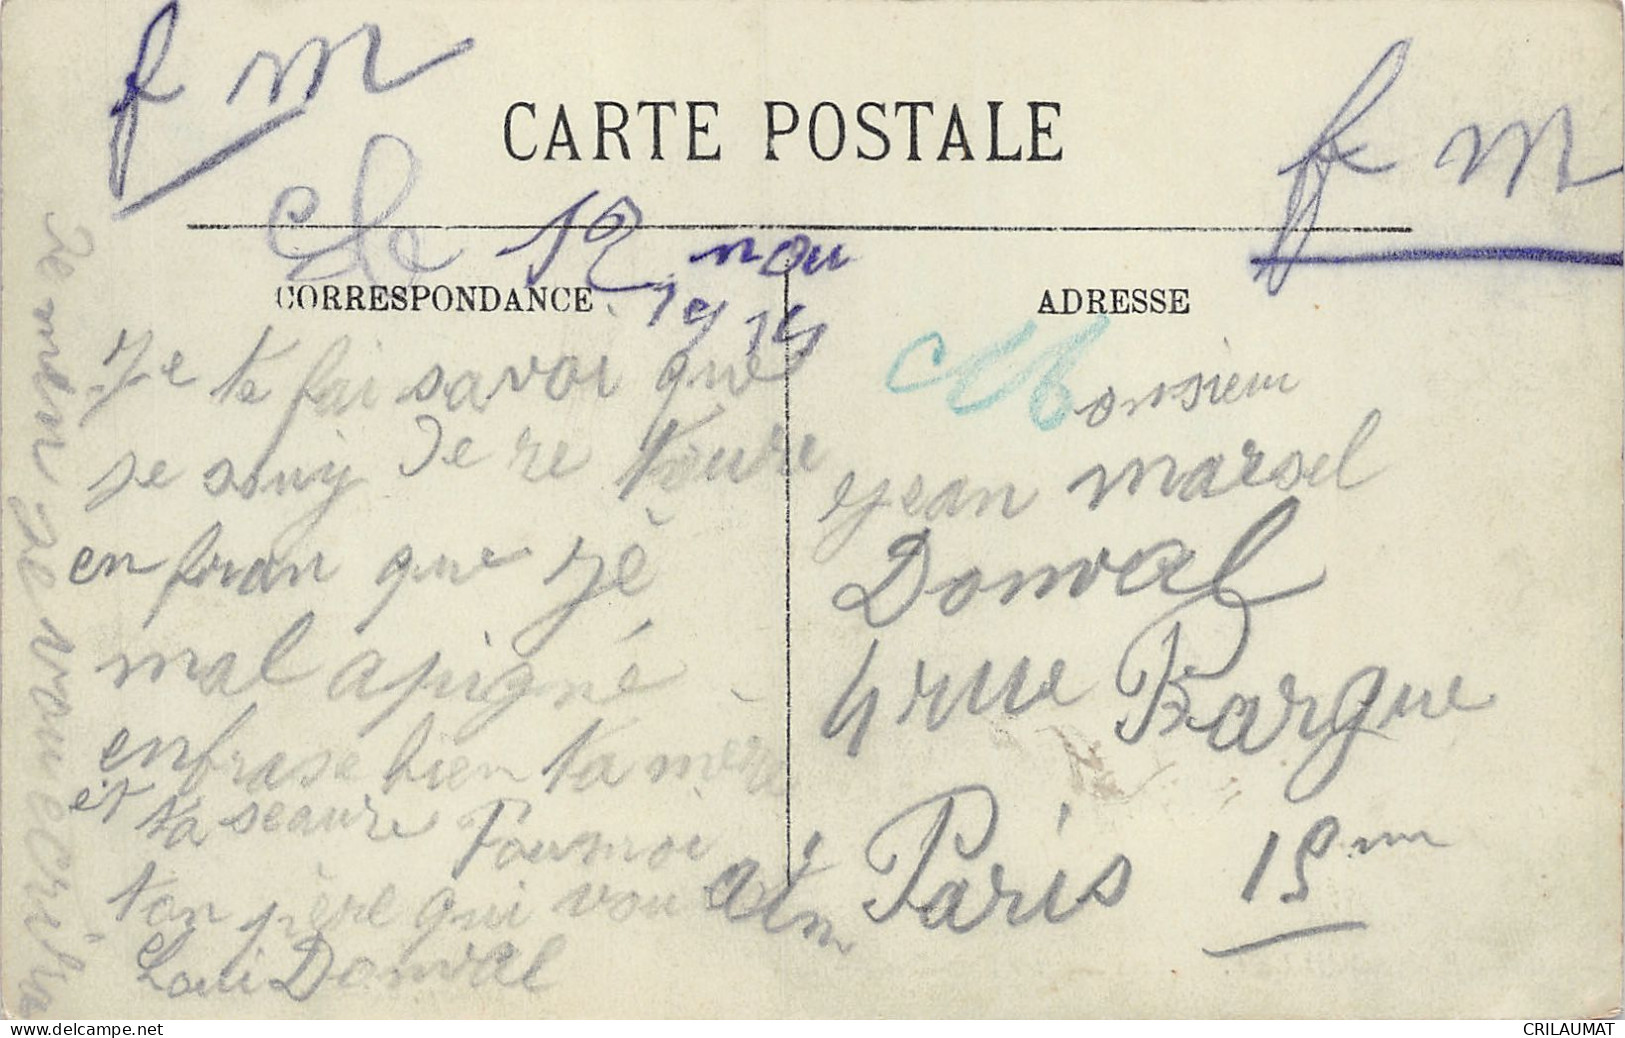 f m
CARTE POSTALE
f m
Le 12 nou
1914
CORRESPONDANCE
Je te fai savoi que
je suiy Je re
en fran que jé
mal apigné
enbrase bien ta mère
et ta seaure Pourmoi
ton père qui vou aim
Loui Donval
ADRESSE
Monsieur
jean marsel
Donval
4 rue Bargue
Paris 15 me
je vou écri
www.delcampe.net
CRILAUMAT